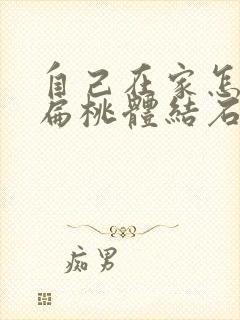 自己在家怎
扁桃體結石
痴男